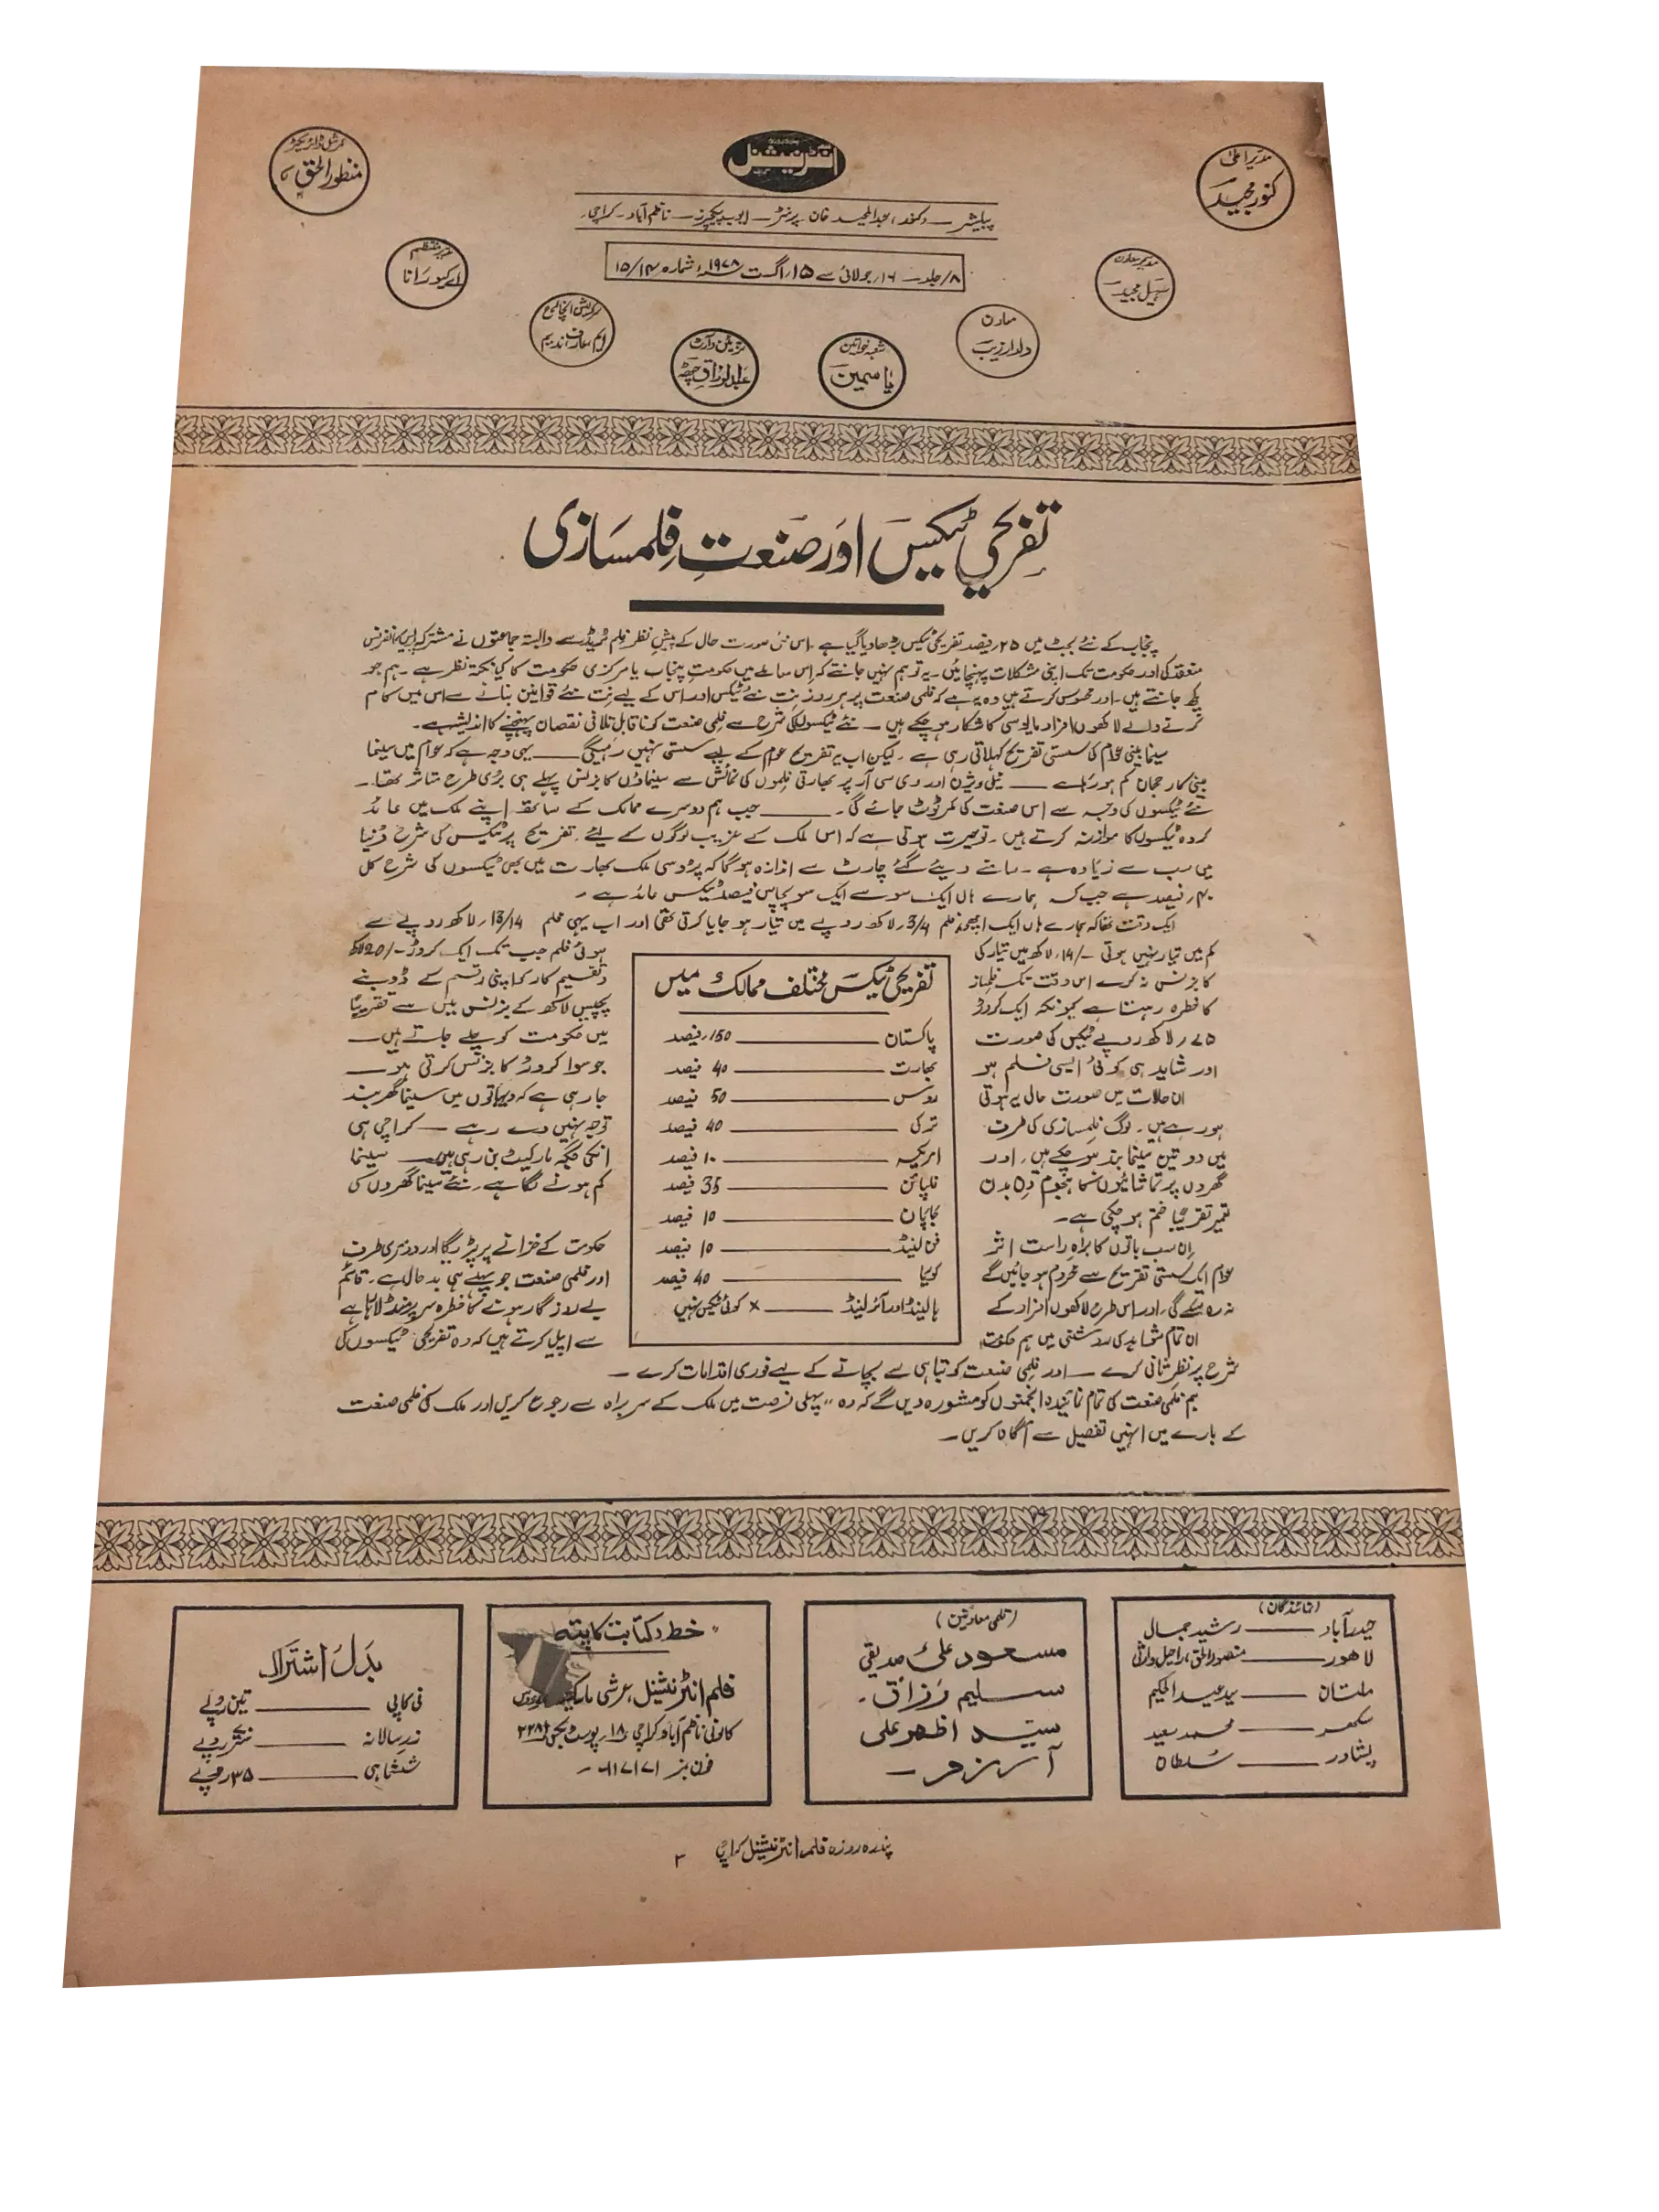 انٹرنیشنل
مدیر اعلیٰ
کنور مجید
کمرشل ڈائریکٹر
منظور الحق
پبلیشر — (کنور) عبدالمجید خان پرنٹر — ایوب پکچرز — ناظم آباد - کراچی
۸/جلد — ۱۶؍جولائی سے ۱۵؍اگست ۱۹۷۸ء شمارہ ۱۵/۱۴
مدیر معاون
سہیل مجید
مدیر منتظم
اے کیو رانا
معاون
دلدار زیب
شعبہ خواتین
یاسمین
تزئین و آرٹ
عبدالرزاق
سرکولیشن انچارج
ایم عارف ندیم
تفریحی ٹیکس اور صنعتِ فلمسازی
پنجاب کے نئے بجٹ میں ۲۵؍فیصد تفریحی ٹیکس بڑھا دیا گیا ہے۔ اس نئی صورت حال کے پیشِ نظر فلم ٹریڈ سے وابستہ جماعتوں نے مشترکہ پریس کانفرنس
منعقد کی اور حکومت تک اپنی مشکلات پہنچائیں۔ یہ تو ہم نہیں جانتے کہ اس سلسلے میں حکومتِ پنجاب یا مرکزی حکومت کا کیا نکتہ نظر ہے۔ ہم جو
کچھ جانتے ہیں۔ اور محسوس کرتے ہیں وہ یہ ہے کہ فلمی صنعت پر ہر روز نِت نئے ٹیکس اور اس کے لیے نِت نئے قوانین بنانے سے اس میں کام
کرنے والے لاکھوں افراد مایوسی کا شکار ہو چکے ہیں — نئے ٹیکسوں کی شرح سے فلمی صنعت کو ناقابلِ تلافی نقصان پہنچنے کا اندیشہ ہے۔
سینما بینی عوام کی سستی تفریح کہلاتی رہی ہے۔ لیکن اب یہ تفریح عوام کے لیے سستی نہیں رہیگی — یہی وجہ ہے کہ عوام میں سینما
بینی کا رجحان کم ہو رہا ہے — ٹیلی ویژن اور وی سی آر پر بھارتی فلموں کی نمائش سے سینماؤں کا بزنس پہلے ہی بُری طرح متاثر تھا۔
نئے ٹیکسوں کی وجہ سے اس صنعت کی کمر ٹوٹ جائے گی۔ — جب ہم دوسرے ممالک کے ساتھ اپنے ملک میں عائد
کردہ ٹیکسوں کا موازنہ کرتے ہیں۔ تو حیرت ہوتی ہے کہ اس ملک کے غریب لوگوں کے لئے تفریح پر ٹیکس کی شرح دُنیا
میں سب سے زیادہ ہے۔ سامنے دیئے گئے چارٹ سے اندازہ ہو گا کہ پڑوسی ملک بھارت میں بھی ٹیکسوں کی شرح کل
۴۰؍فیصد ہے جب کہ ہمارے ہاں ایک سو سے ایک سو پچاس فیصد ٹیکس عائد ہے۔
ایک وقت تھا کہ ہمارے ہاں ایک اچھی فلم 3/4؍لاکھ روپے میں تیار ہو جایا کرتی تھی اور اب یہی فلم 13/14؍لاکھ روپے سے
کم میں تیار نہیں ہوتی -/14؍لاکھ میں تیار کی ہوئی فلم جب تک ایک کروڑ -/20لاکھ
کا بزنس نہ کرے اس وقت تک فلمساز و تقسیم کار کو اپنی رقم کے ڈوبنے
کا خطرہ رہتا ہے کیونکہ ایک کروڑ پچیس لاکھ کے بزنس میں سے تقریبًا
۷۵؍لاکھ روپے ٹیکس کی صورت میں حکومت کو چلے جاتے ہیں۔
اور شاید ہی کوئی ایسی فلم ہو جو سوا کروڑ کا بزنس کرتی ہو —
ان حالات میں صورت حال یہ ہوتی جا رہی ہے کہ دیہاتوں میں سینما گھر بند
ہو رہے ہیں۔ لوگ فلمسازی کی طرف توجہ نہیں دے رہے — کراچی ہی
میں دو تین سینما بند ہو چکے ہیں۔ اور انکی جگہ مارکیٹ بن رہی ہیں — سینما
گھروں پر تماشائیوں کا ہجوم دن بدن کم ہونے لگا ہے۔ نئے سینما گھروں کی
تعمیر تقریبًا ختم ہو چکی ہے۔
اِن سب باتوں کا براہِ راست اثر حکومت کے خزانے پر پڑیگا اور دوسری طرف
عوام ایک سستی تفریح سے محروم ہو جائیں گے اور فلمی صنعت جو پہلے ہی بدحال ہے۔ قائم
نہ رہ سکے گی۔ اور اس طرح لاکھوں افراد کے بے روزگار ہونے کا خطرہ سر پر منڈلا رہا ہے
ان تمام شواہد کی روشنی میں ہم حکومت سے اپیل کرتے ہیں کہ وہ تفریحی ٹیکسوں کی
شرح پر نظرِ ثانی کرے — اور فلمی صنعت کو تباہی سے بچانے کے لیے فوری اقدامات کرے —
ہم فلمی صنعت کی تمام نمائیندہ انجمنوں کو مشورہ دیں گے کہ وہ "پہلی فرصت میں ملک کے سربراہ سے رجوع کریں اور ملک کی فلمی صنعت
کے بارے میں انہیں تفصیل سے آگاہ کریں۔
تفریحی ٹیکس مختلف ممالک میں
پاکستان — 150؍فیصد
بھارت — 40 فیصد
روس — 50 فیصد
ترکی — 40 فیصد
امریکہ — 10 فیصد
فلپائن — 35 فیصد
جاپان — 10 فیصد
فن لینڈ — 10 فیصد
کوریا — 40 فیصد
ہالینڈ اور آئرلینڈ — × کوئی ٹیکس نہیں
(نمائندگان)
حیدرآباد — رشید جمال
لاھور — منصور الحق، راحیل وارثی
ملتان — سید عبدالحکیم
سکھر — محمد سعید
پشاور — سُلطان
(قلمی معاونین)
مسعود علی صدیقی
سلیم رزاق۔
سیّد اظہر علی
آرزو —
خط و کتابت کا پتہ
فلم انٹرنیشنل، عرشی مارکیٹ
کالونی ناظم آباد کراچی ۱۸؍ پوسٹ بکس ۲۲۸۱
فون نمبر ۶۱۷۱۷۱ —
بدلِ اشتراک
فی کاپی — تین روپے
زرِ سالانہ — ستّر روپے
ششماہی — ۳۵ روپے
پندرہ روزہ فلم انٹرنیشنل کراچی ۳